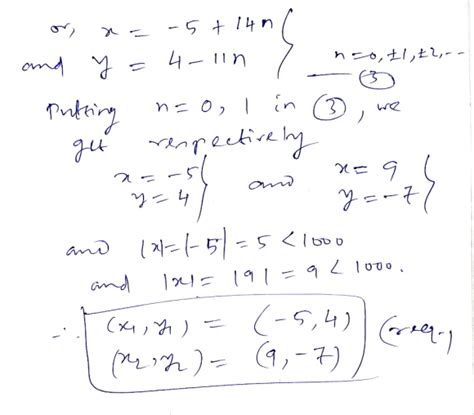 or, x = -5 + 14n
and y = 4 - 11n } n = 0, ±1, ±2, --
③
Putting n = 0, 1 in ③, we
get respectively
x = -5
y = 4 } and x = 9
y = -7 }
and |x| = |-5| = 5 < 1000
and |x| = |9| = 9 < 1000.
∴ (x₁, y₁) = (-5, 4)
(x₂, y₂) = (9, -7)